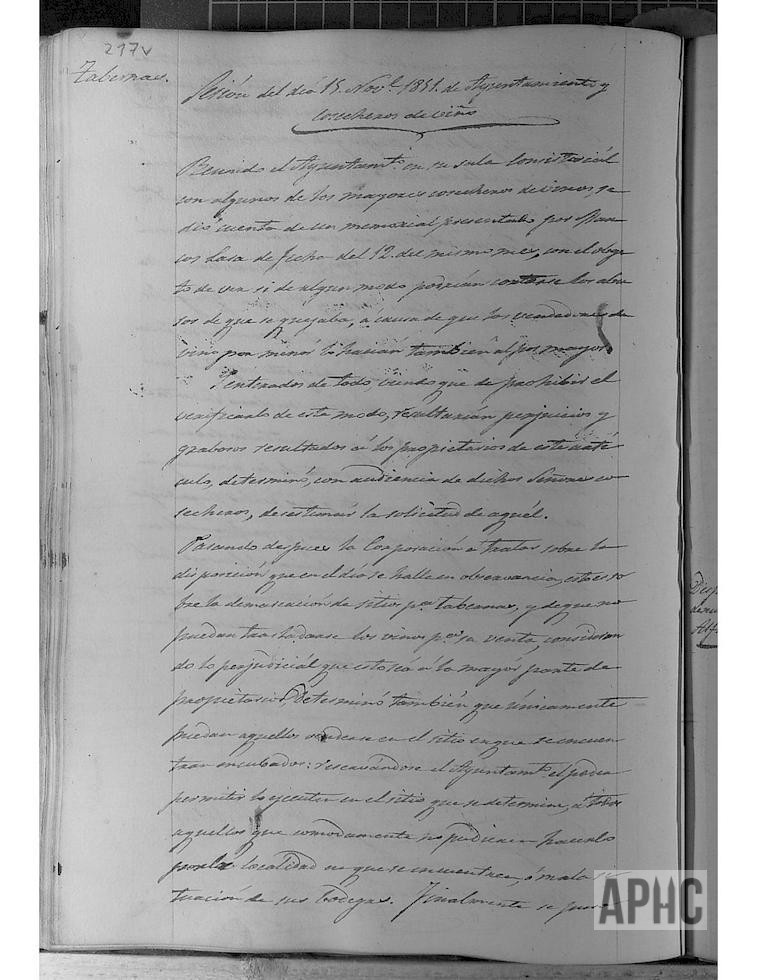 217v
Tabernas.
Sesión del día 15. Nov.e 1851. de Ayuntamiento y
cosecheros de vino
Reunido el Ayuntam.to en su sala Consistorial
con algunos de los mayores cosecheros de vinos, se
dió cuenta de un memorial presentado por Mar
cos Lasa de fecha del 12. del mismo mes, con el obge
to de ver si de algun modo podrían cortarse los abu
sos de que se quejaba, a causa de que los vendedores de
vino por menor lo hacían tambien al por mayor.
Y enterados de todo, viendo que de prohibir el
verificarlo de este modo, resultarían perjuicios y
grabosos resultados á los propietarios de este artí
culo, determinó, con audiencia de dichos Señores co
secheros, desestimar la solicitud de aquél.
Pasando despues la Corporación a tratar sobre la
disposición que en el día se halla en observancia, esto es so
bre la demarcación de sitios p.a tabernas, y de que no
puedan trasladarse los vinos p.a su venta, consideran
do lo perjudicial que esto sea a la mayor parte de
propietarios, determinó también que únicamente
puedan aquellos venderse en el sitio en que se encuen
tran encubados: reservándose el Ayuntam.to el poder
permitir lo ejecuten en el sitio que se determine, a todos
aquellos que comodamente no pudieran hacerlo
por la localidad en que se encuentren, ó mala si
tuación de sus bodegas. Finalmente se
APHC